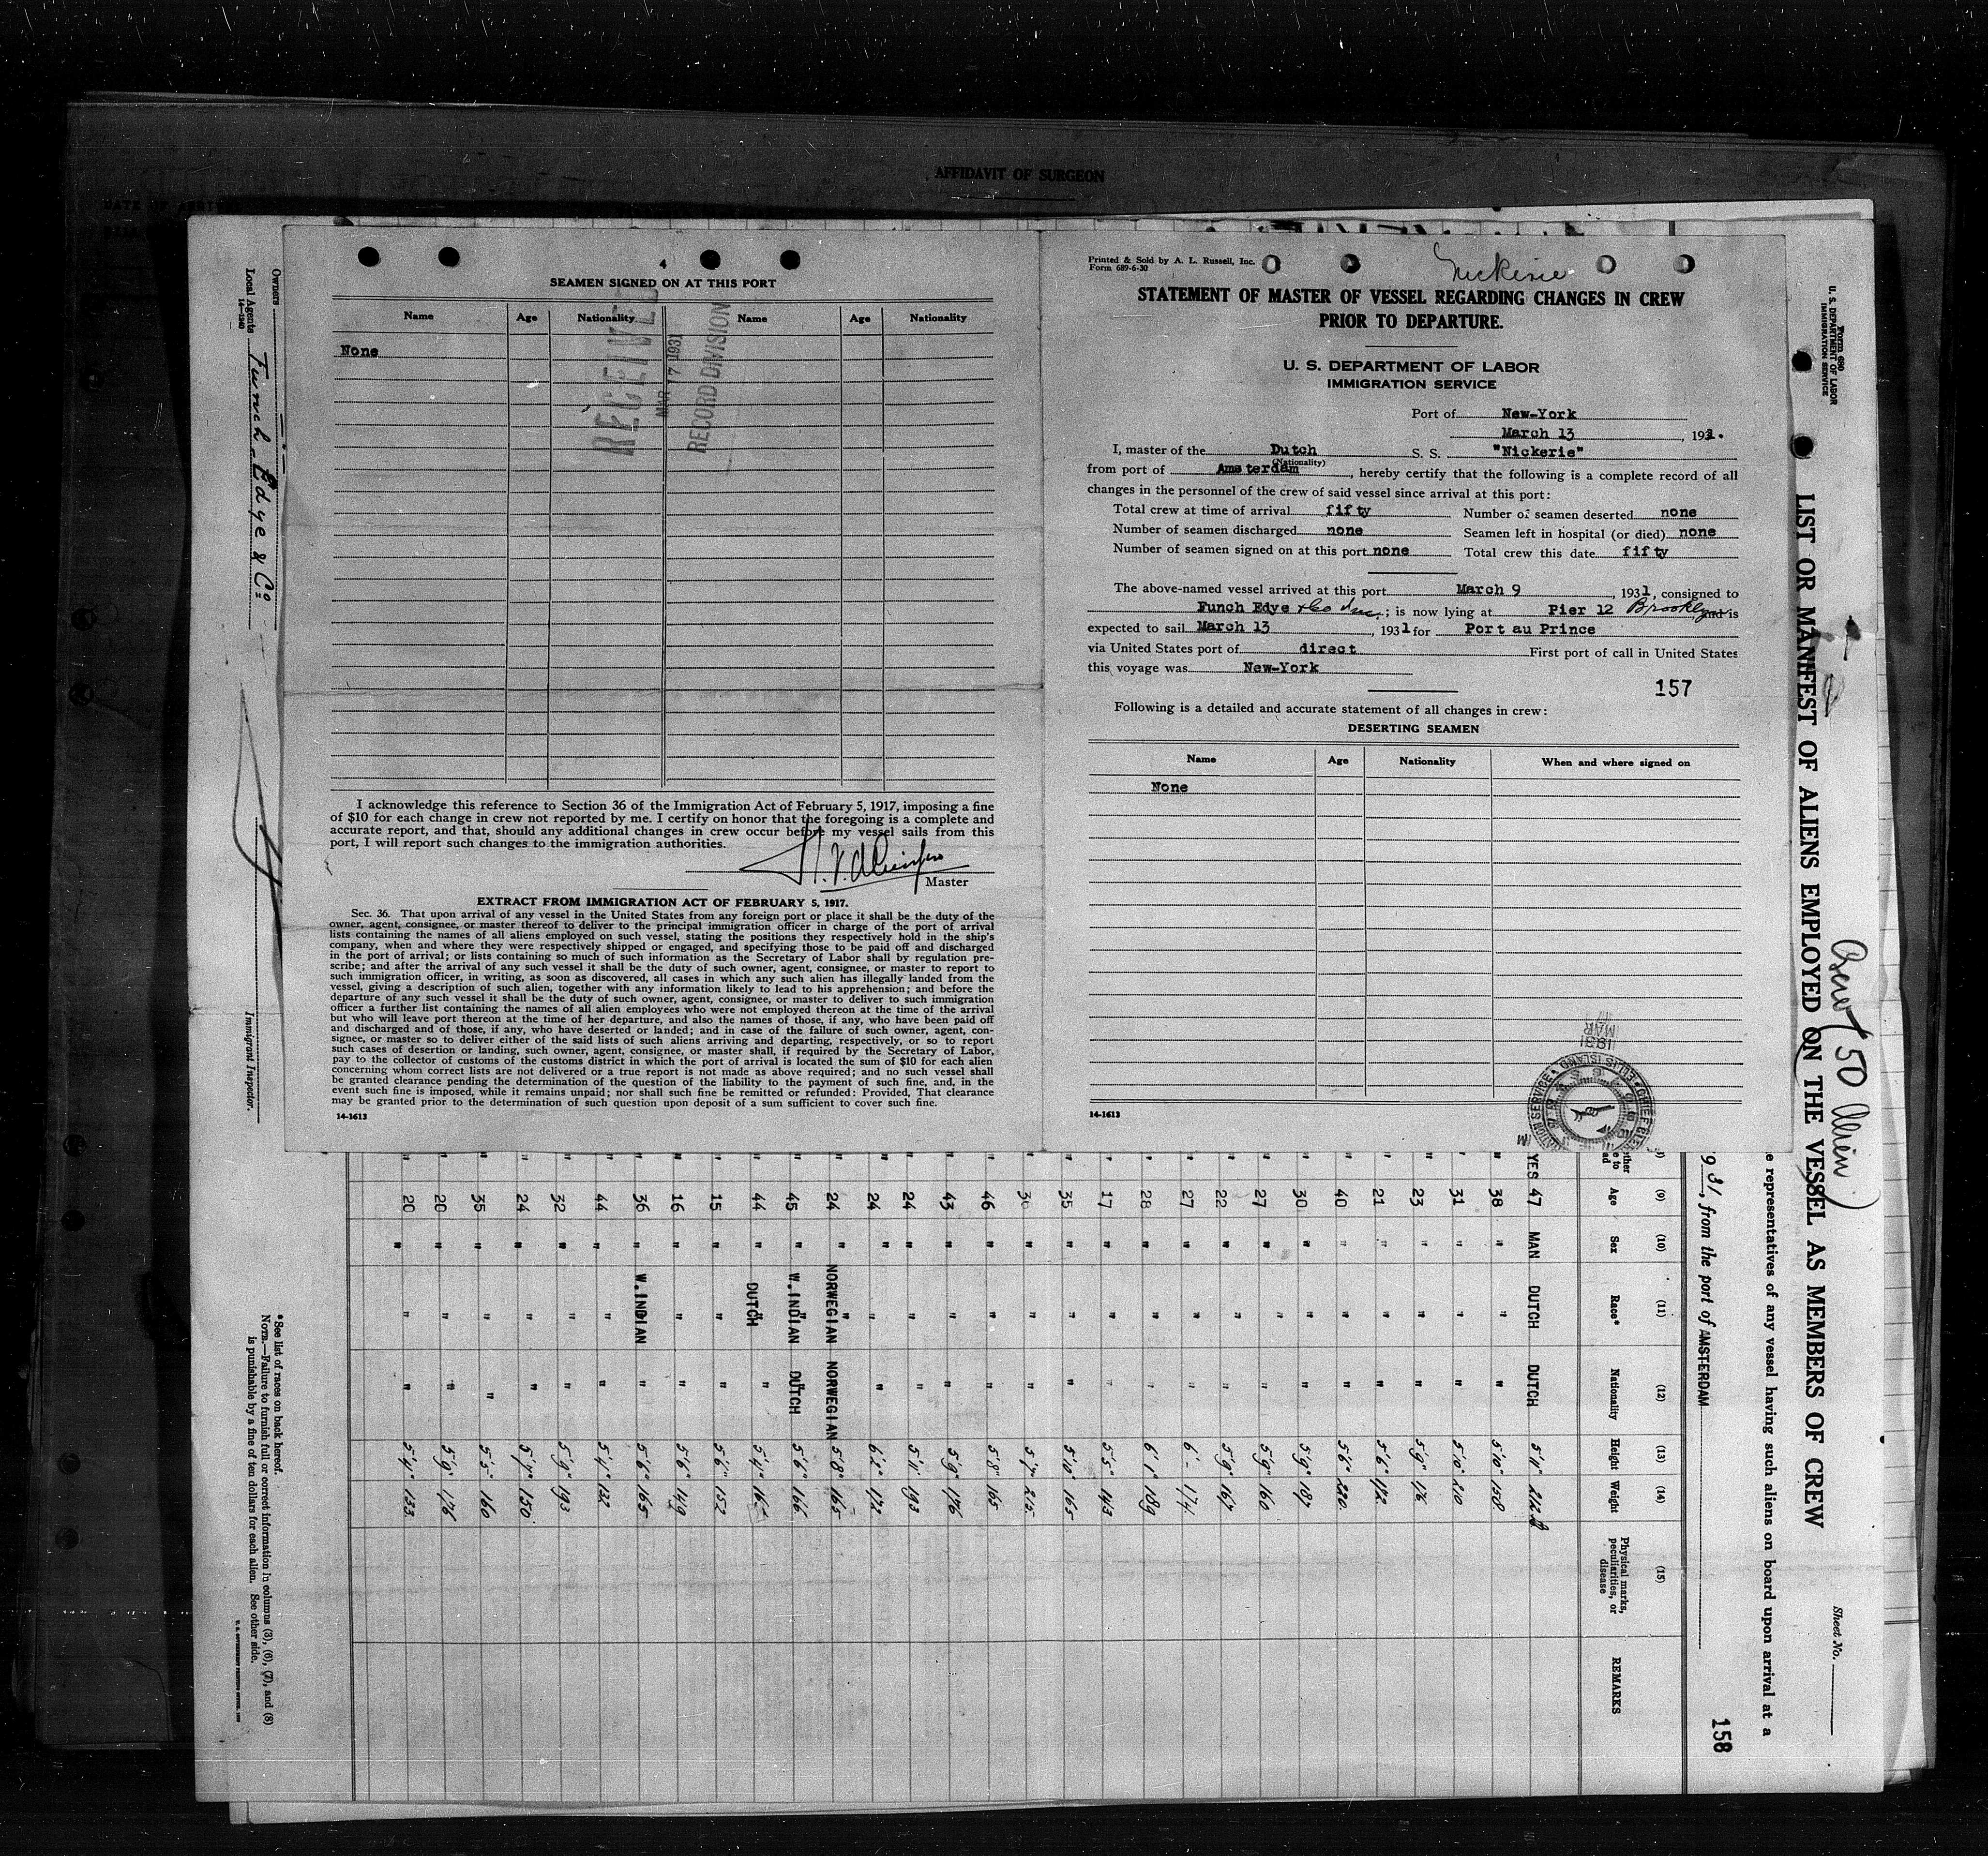 AFFIDAVIT OF SURGEON
4
SEAMEN SIGNED ON AT THIS PORT
Name Age Nationality Name Age Nationality
None
RECEIVED
MAR 17 1931
RECORD DIVISION
I acknowledge this reference to Section 36 of the Immigration Act of February 5, 1917, imposing a fine
of $10 for each change in crew not reported by me. I certify on honor that the foregoing is a complete and
accurate report, and that, should any additional changes in crew occur before my vessel sails from this
port, I will report such changes to the immigration authorities.
Master
EXTRACT FROM IMMIGRATION ACT OF FEBRUARY 5, 1917.
Sec. 36. That upon arrival of any vessel in the United States from any foreign port or place it shall be the duty of the
owner, agent, consignee, or master thereof to deliver to the principal immigration officer in charge of the port of arrival
lists containing the names of all aliens employed on such vessel, stating the positions they respectively hold in the ship's
company, when and where they were respectively shipped or engaged, and specifying those to be paid off and discharged
in the port of arrival; or lists containing so much of such information as the Secretary of Labor shall by regulation pre-
scribe; and after the arrival of any such vessel it shall be the duty of such owner, agent, consignee, or master to report to
such immigration officer, in writing, as soon as discovered, all cases in which any such alien has illegally landed from the
vessel, giving a description of such alien, together with any information likely to lead to his apprehension; and before the
departure of any such vessel it shall be the duty of such owner, agent, consignee, or master to deliver to such immigration
officer a further list containing the names of all alien employees who were not employed thereon at the time of the arrival
but who will leave port thereon at the time of her departure, and also the names of those, if any, who have been paid off
and discharged and of those, if any, who have deserted or landed; and in case of the failure of such owner, agent, con-
signee, or master so to deliver either of the said lists of such aliens arriving and departing, respectively, or so to report
such cases of desertion or landing, such owner, agent, consignee, or master shall, if required by the Secretary of Labor,
pay to the collector of customs of the customs district in which the port of arrival is located the sum of $10 for each alien
concerning whom correct lists are not delivered or a true report is not made as above required; and no such vessel shall
be granted clearance pending the determination of the question of the liability to the payment of such fine, and, in the
event such fine is imposed, while it remains unpaid; nor shall such fine be remitted or refunded: Provided, That clearance
may be granted prior to the determination of such question upon deposit of a sum sufficient to cover such fine.
14-1613
Printed & Sold by A. L. Russell, Inc.
Form 689-6-30
Nickerie
STATEMENT OF MASTER OF VESSEL REGARDING CHANGES IN CREW
PRIOR TO DEPARTURE.
U. S. DEPARTMENT OF LABOR
IMMIGRATION SERVICE
Port of New-York
March 13, 1931.
I, master of the Dutch S. S. "Nickerie"
(Nationality)
from port of Amsterdam, hereby certify that the following is a complete record of all
changes in the personnel of the crew of said vessel since arrival at this port:
Total crew at time of arrival fifty Number of seamen deserted none
Number of seamen discharged none Seamen left in hospital (or died) none
Number of seamen signed on at this port none Total crew this date fifty
The above-named vessel arrived at this port March 9, 1931, consigned to
Funch Edye & Co Inc.; is now lying at Pier 12 Brooklyn and is
expected to sail March 13, 1931 for Port au Prince
via United States port of direct First port of call in United States
this voyage was New-York
157
Following is a detailed and accurate statement of all changes in crew:
DESERTING SEAMEN
Name Age Nationality When and where signed on
None
MAR 17 1931
14-1613
Owners
Local Agents Funch-Edye & Co.
14-1240
Immigrant Inspector.
Form 680
U. S. DEPARTMENT OF LABOR
IMMIGRATION SERVICE
LIST OR MANIFEST OF ALIENS EMPLOYED ON THE VESSEL AS MEMBERS OF CREW
Crew (50 Alien)
Sheet No.
e representatives of any vessel having such aliens on board upon arrival at a
931, from the port of AMSTERDAM
158
(9) (10) (11) (12) (13) (14) (15)
Age Sex Race* Nationality Height Weight Physical marks, peculiarities, or disease REMARKS
YES 47 MAN DUTCH DUTCH 5'11" 212
" 38 " " " 5'10" 158
" 31 " " " 5'10" 210
" 23 " " " 5'9" 176
" 21 " " " 5'6" 172
" 40 " " " 5'6" 220
" 30 " " " 5'9" 187
" 27 " " " 5'9" 160
" 22 " " " 5'9" 167
" 27 " " " 6'- 174
" 28 " " " 6'1" 189
" 17 " " " 5'5" 143
" 35 " " " 5'10" 165
" " " " 5'7" 215
" 46 " " " 5'8" 165
" 43 " " " 5'9" 176
" 24 " " " 5'11" 193
" 24 " " " 6'2" 172
" 24 " NORWEGIAN NORWEGIAN 5'8" 165
" 45 " W.INDIAN DUTCH 5'6" 166
" 44 " DUTCH " 5'4"
" 15 " " " 5'6" 157
" 16 " " " 5'6" 149
" 36 " W.INDIAN " 5'6" 165
" 44 " " " 5'4" 132
" 32 " " " 5'9" 193
" 24 " " " 5'7" 150
" 35 " " " 5'5" 160
" 20 " " " 5'9" 176
" 20 " " " 5'4" 133
*See list of races on back hereof.
NOTE.—Failure to furnish full or correct information in columns (3), (6), (7), and (8)
is punishable by a fine of ten dollars for each alien. See other side.